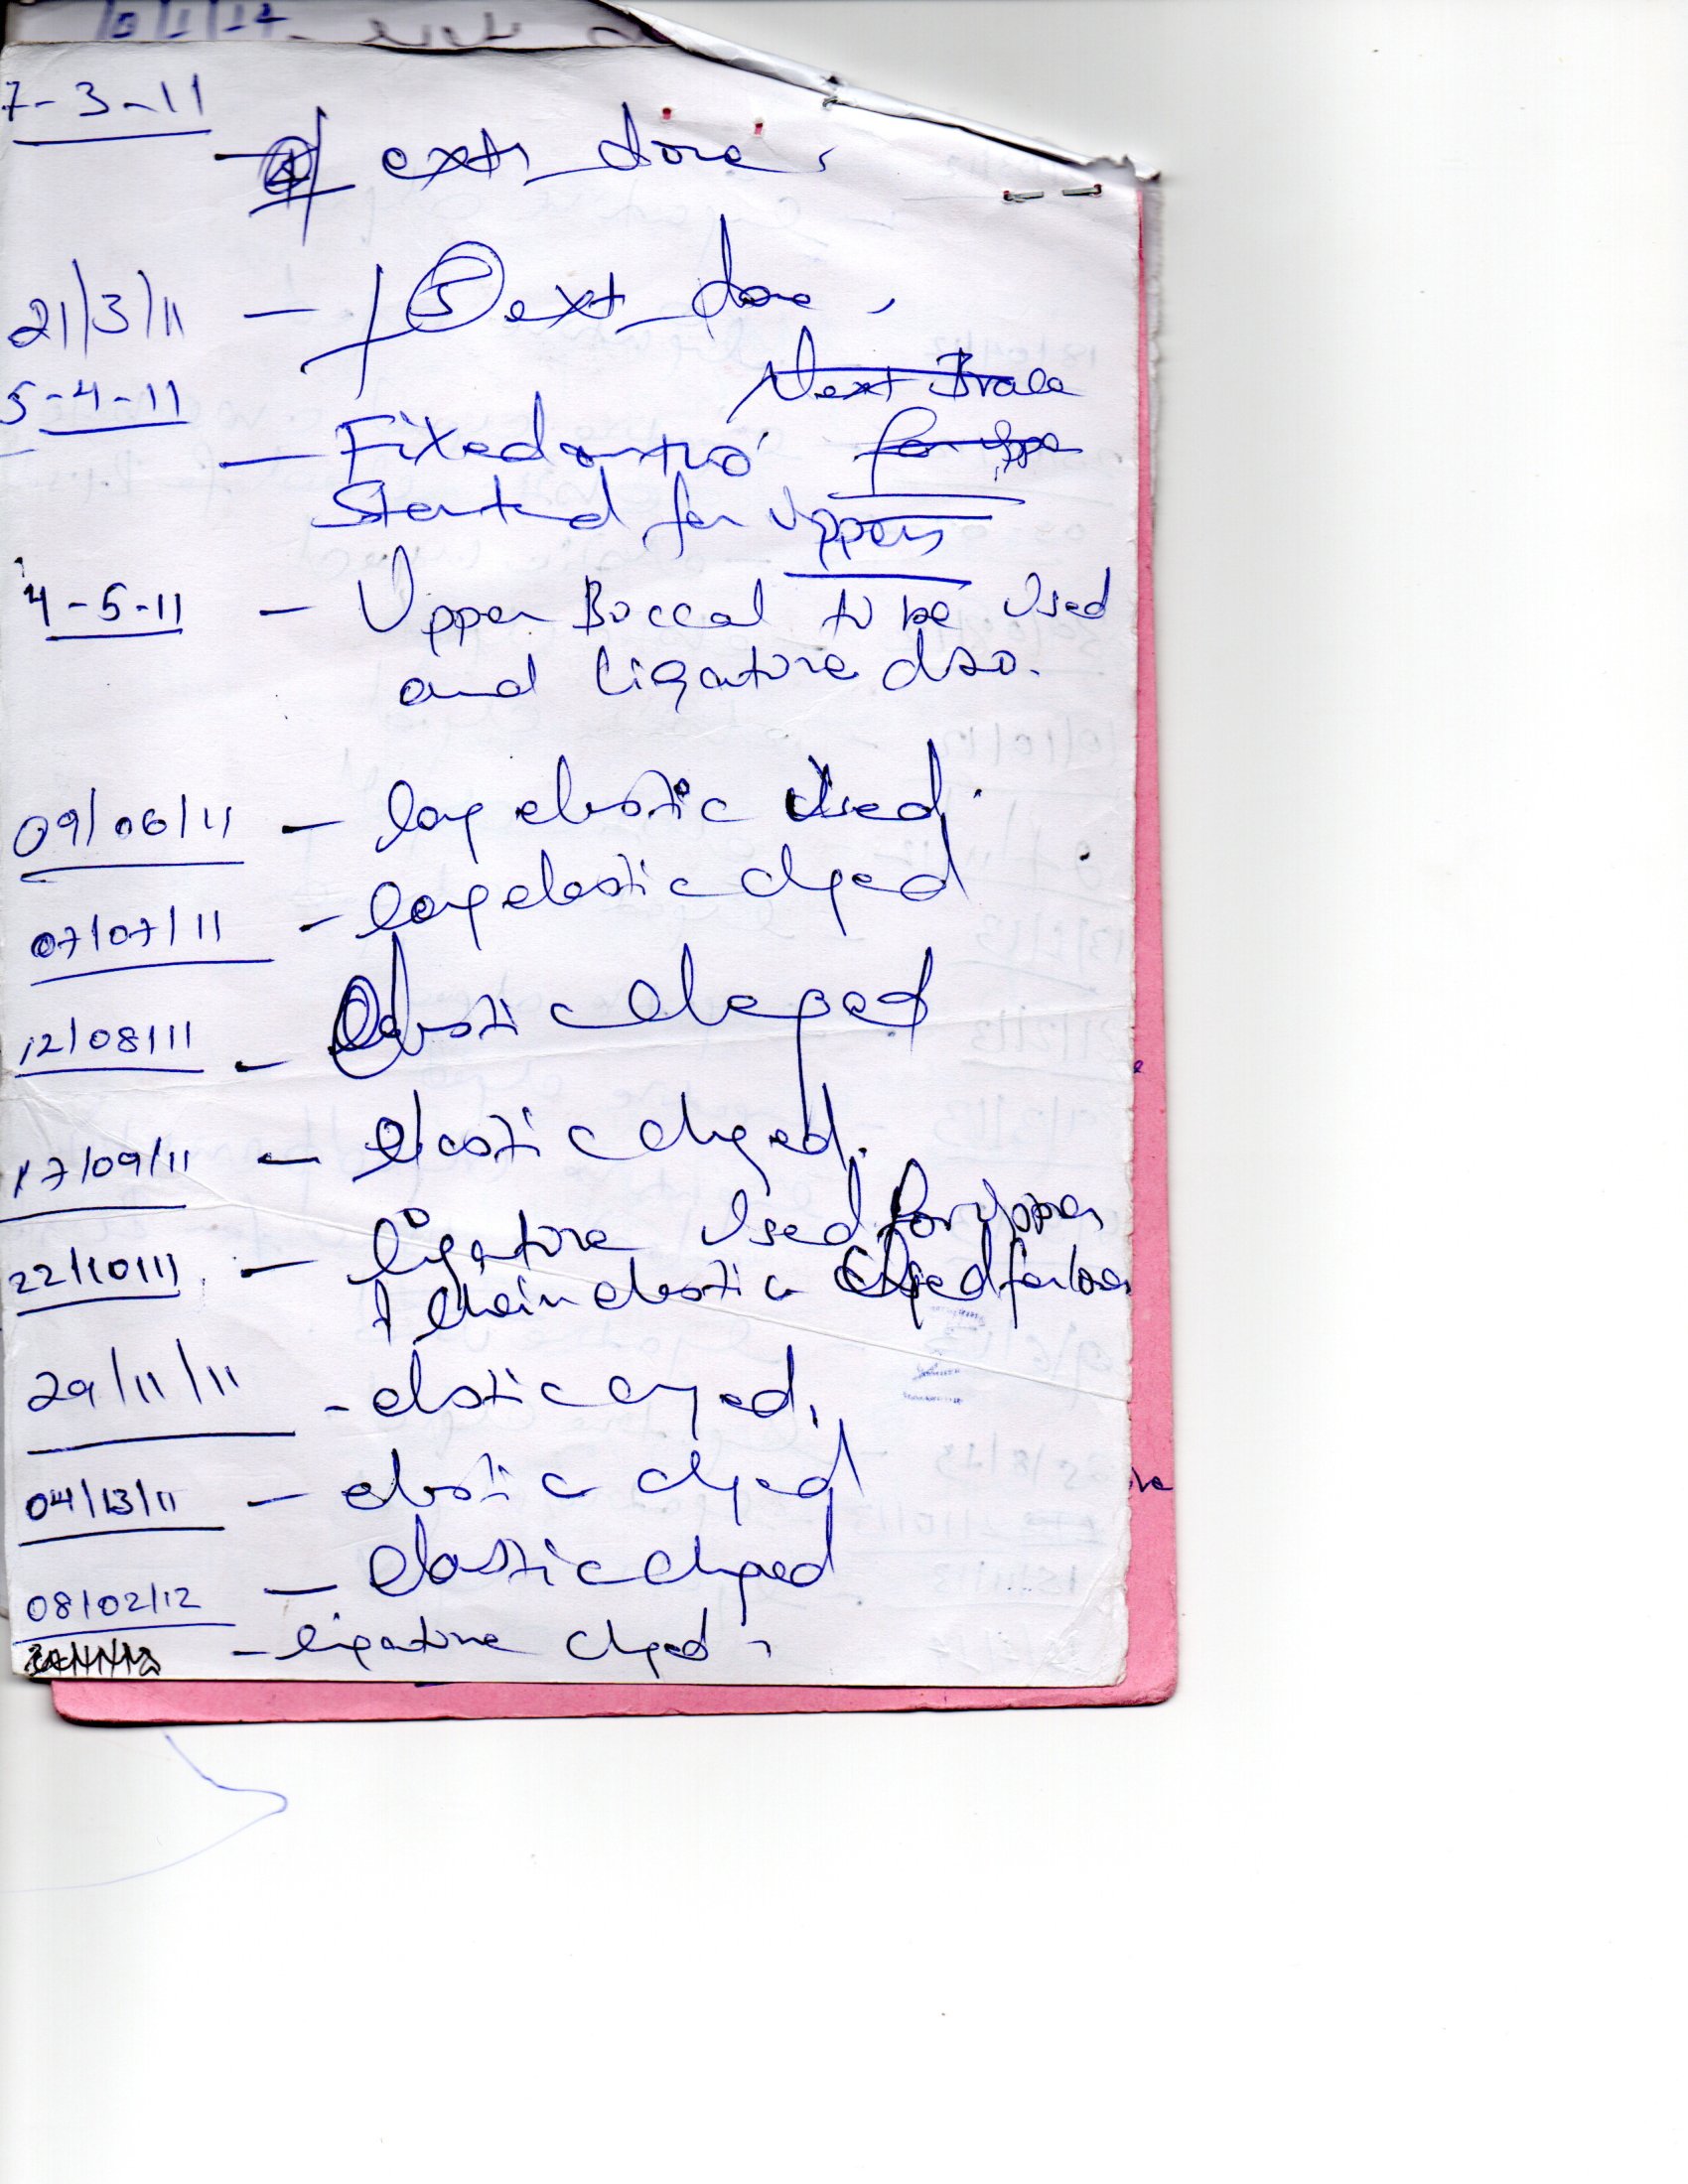 7-3-11
- 4 extr done,
21/3/11 - 5 ext done,
Next Brace
for uppe
5-4-11
- Fixed ortho
Started for Uppers
4-5-11 - Upper Buccal to be Used
and ligature also.
09/06/11 - long elastic Used.
07/07/11 - long elastic chged
12/08/11 - Elastic chaged
17/09/11 - elastic chged.
22/10/11 - ligature Used for upper
& chain elastic chged for lower
29/11/11 - elastic chged,
04/13/11 - elastic chged
08/02/12 - Elastic chged
- ligature chged,